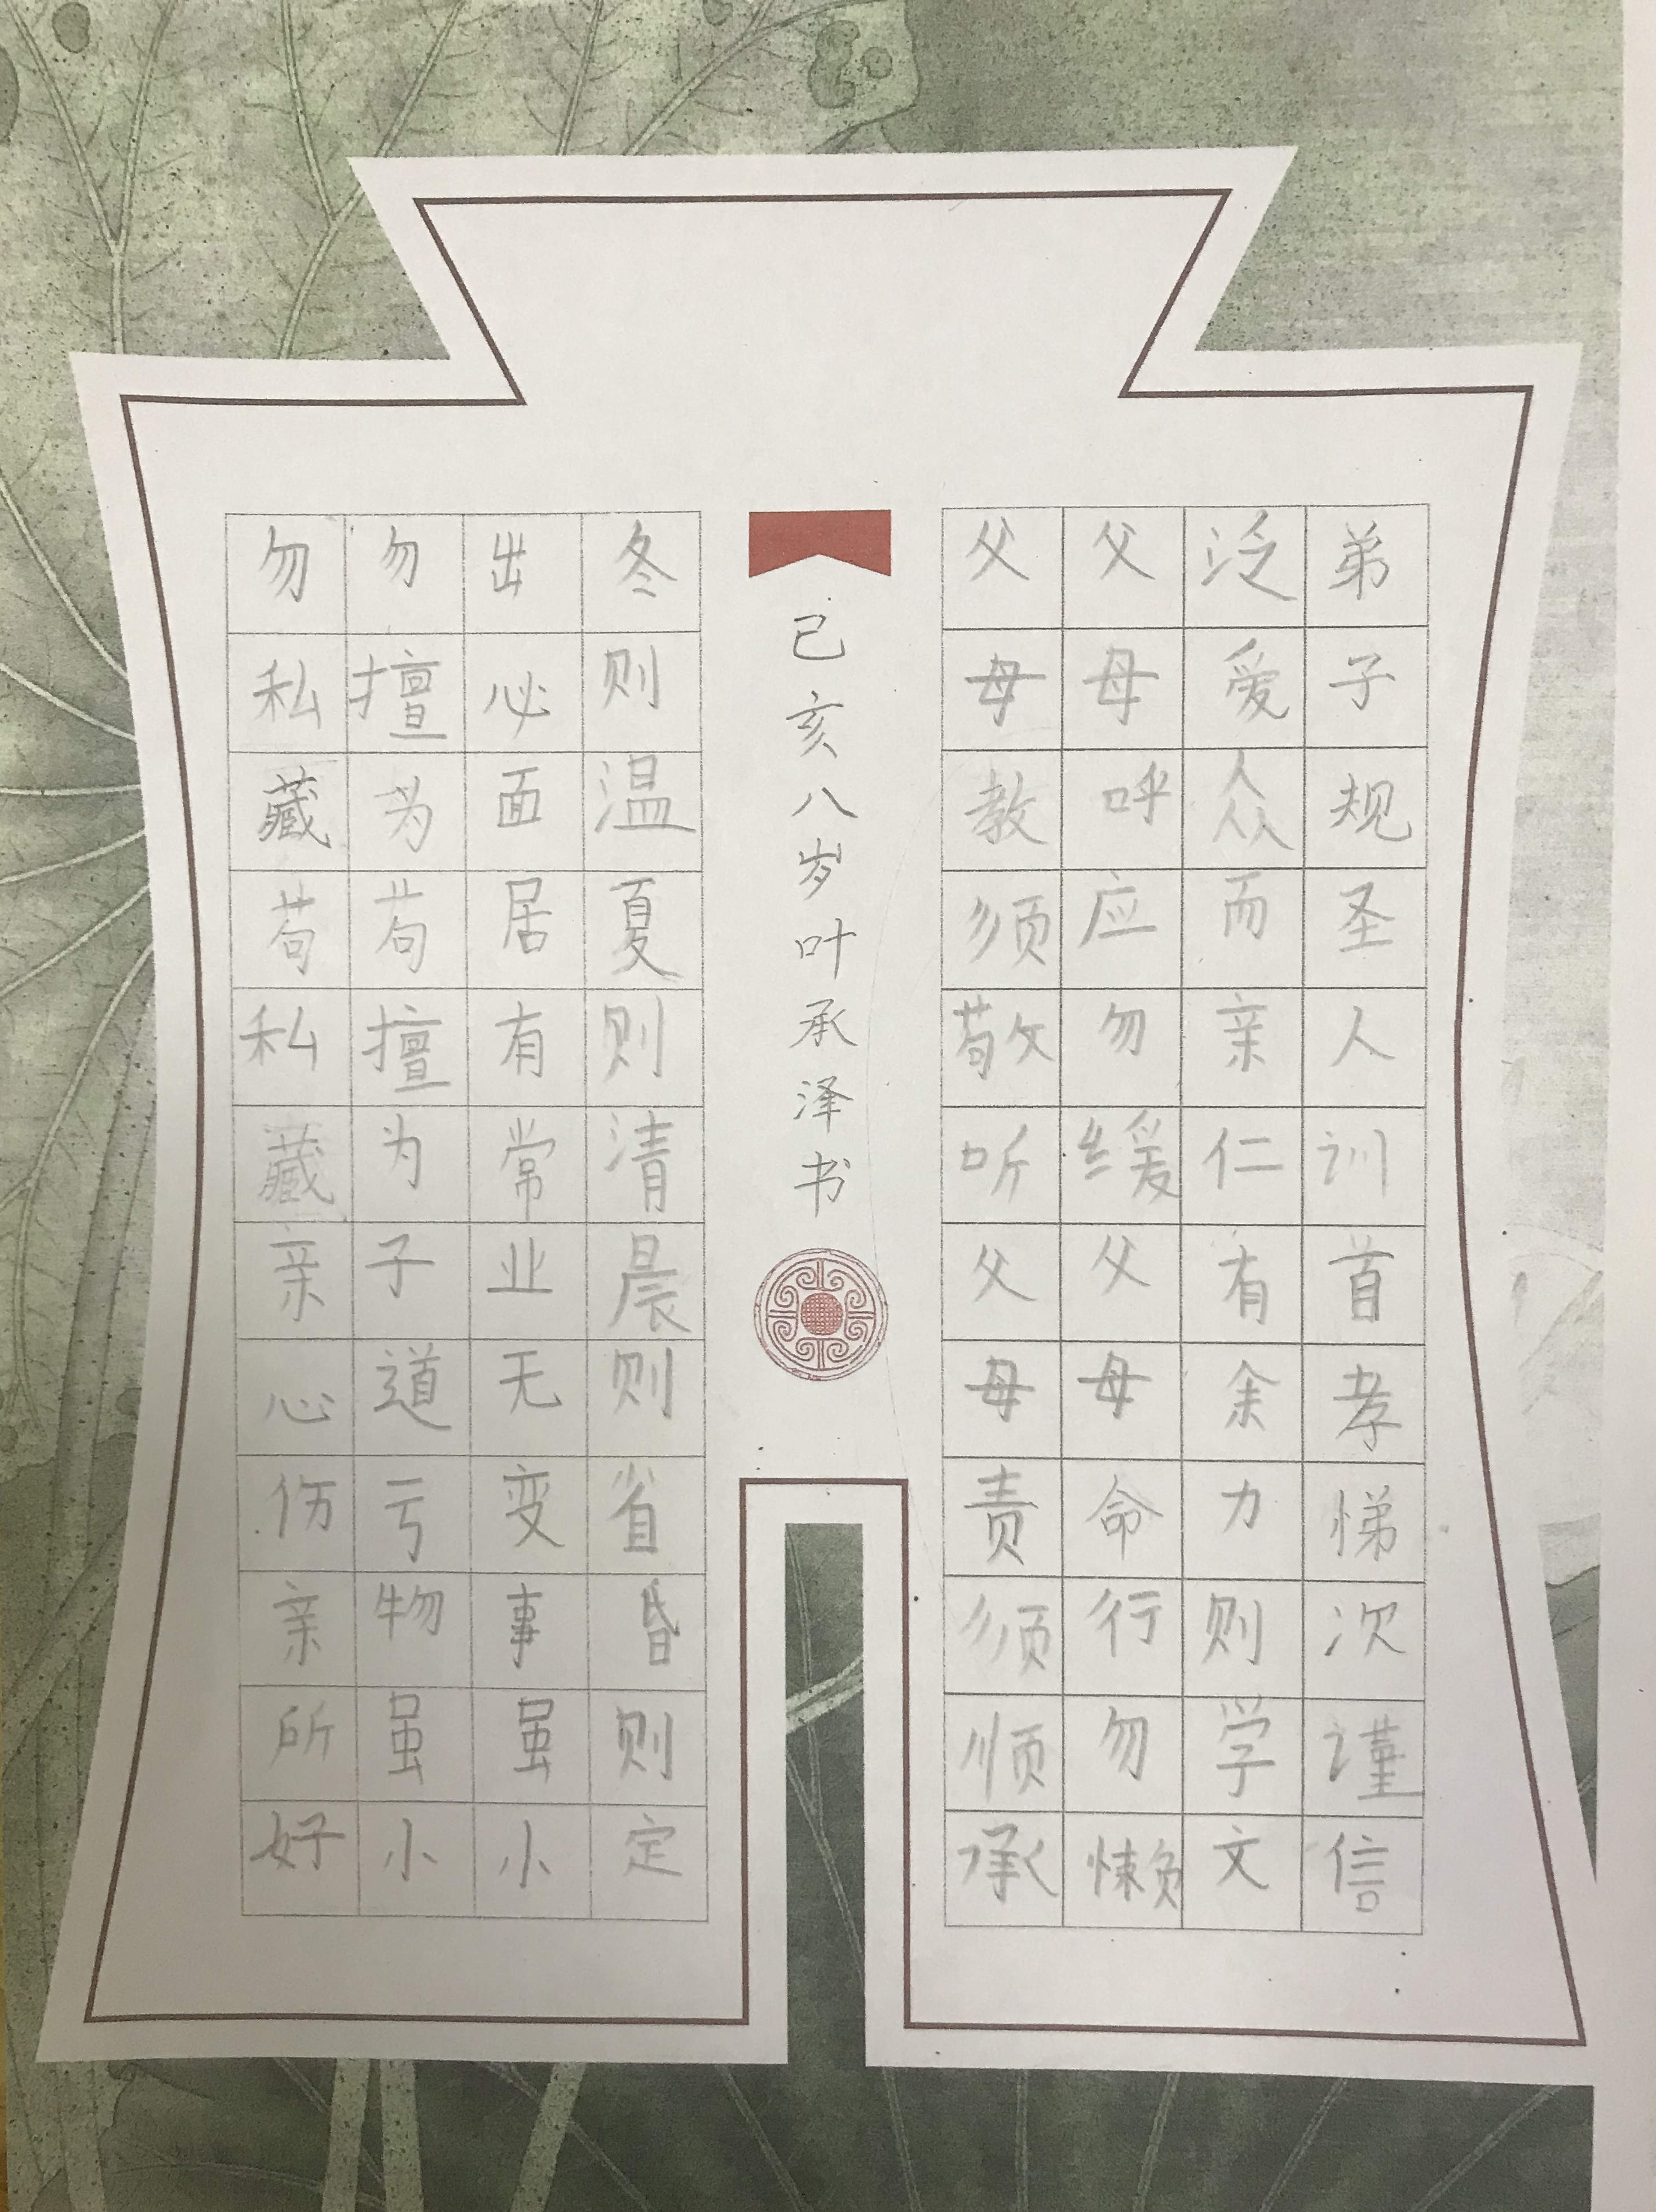 弟子规圣人训首孝悌次谨信
泛爱众而亲仁有余力则学文
父母呼应勿缓父母命行勿懒
父母教须敬听父母责须顺承
己亥八岁叶承泽书
冬则温夏则清晨则省昏则定
出必面居有常业无变事虽小
勿擅为苟擅为子道亏物虽小
勿私藏苟私藏亲心伤亲所好